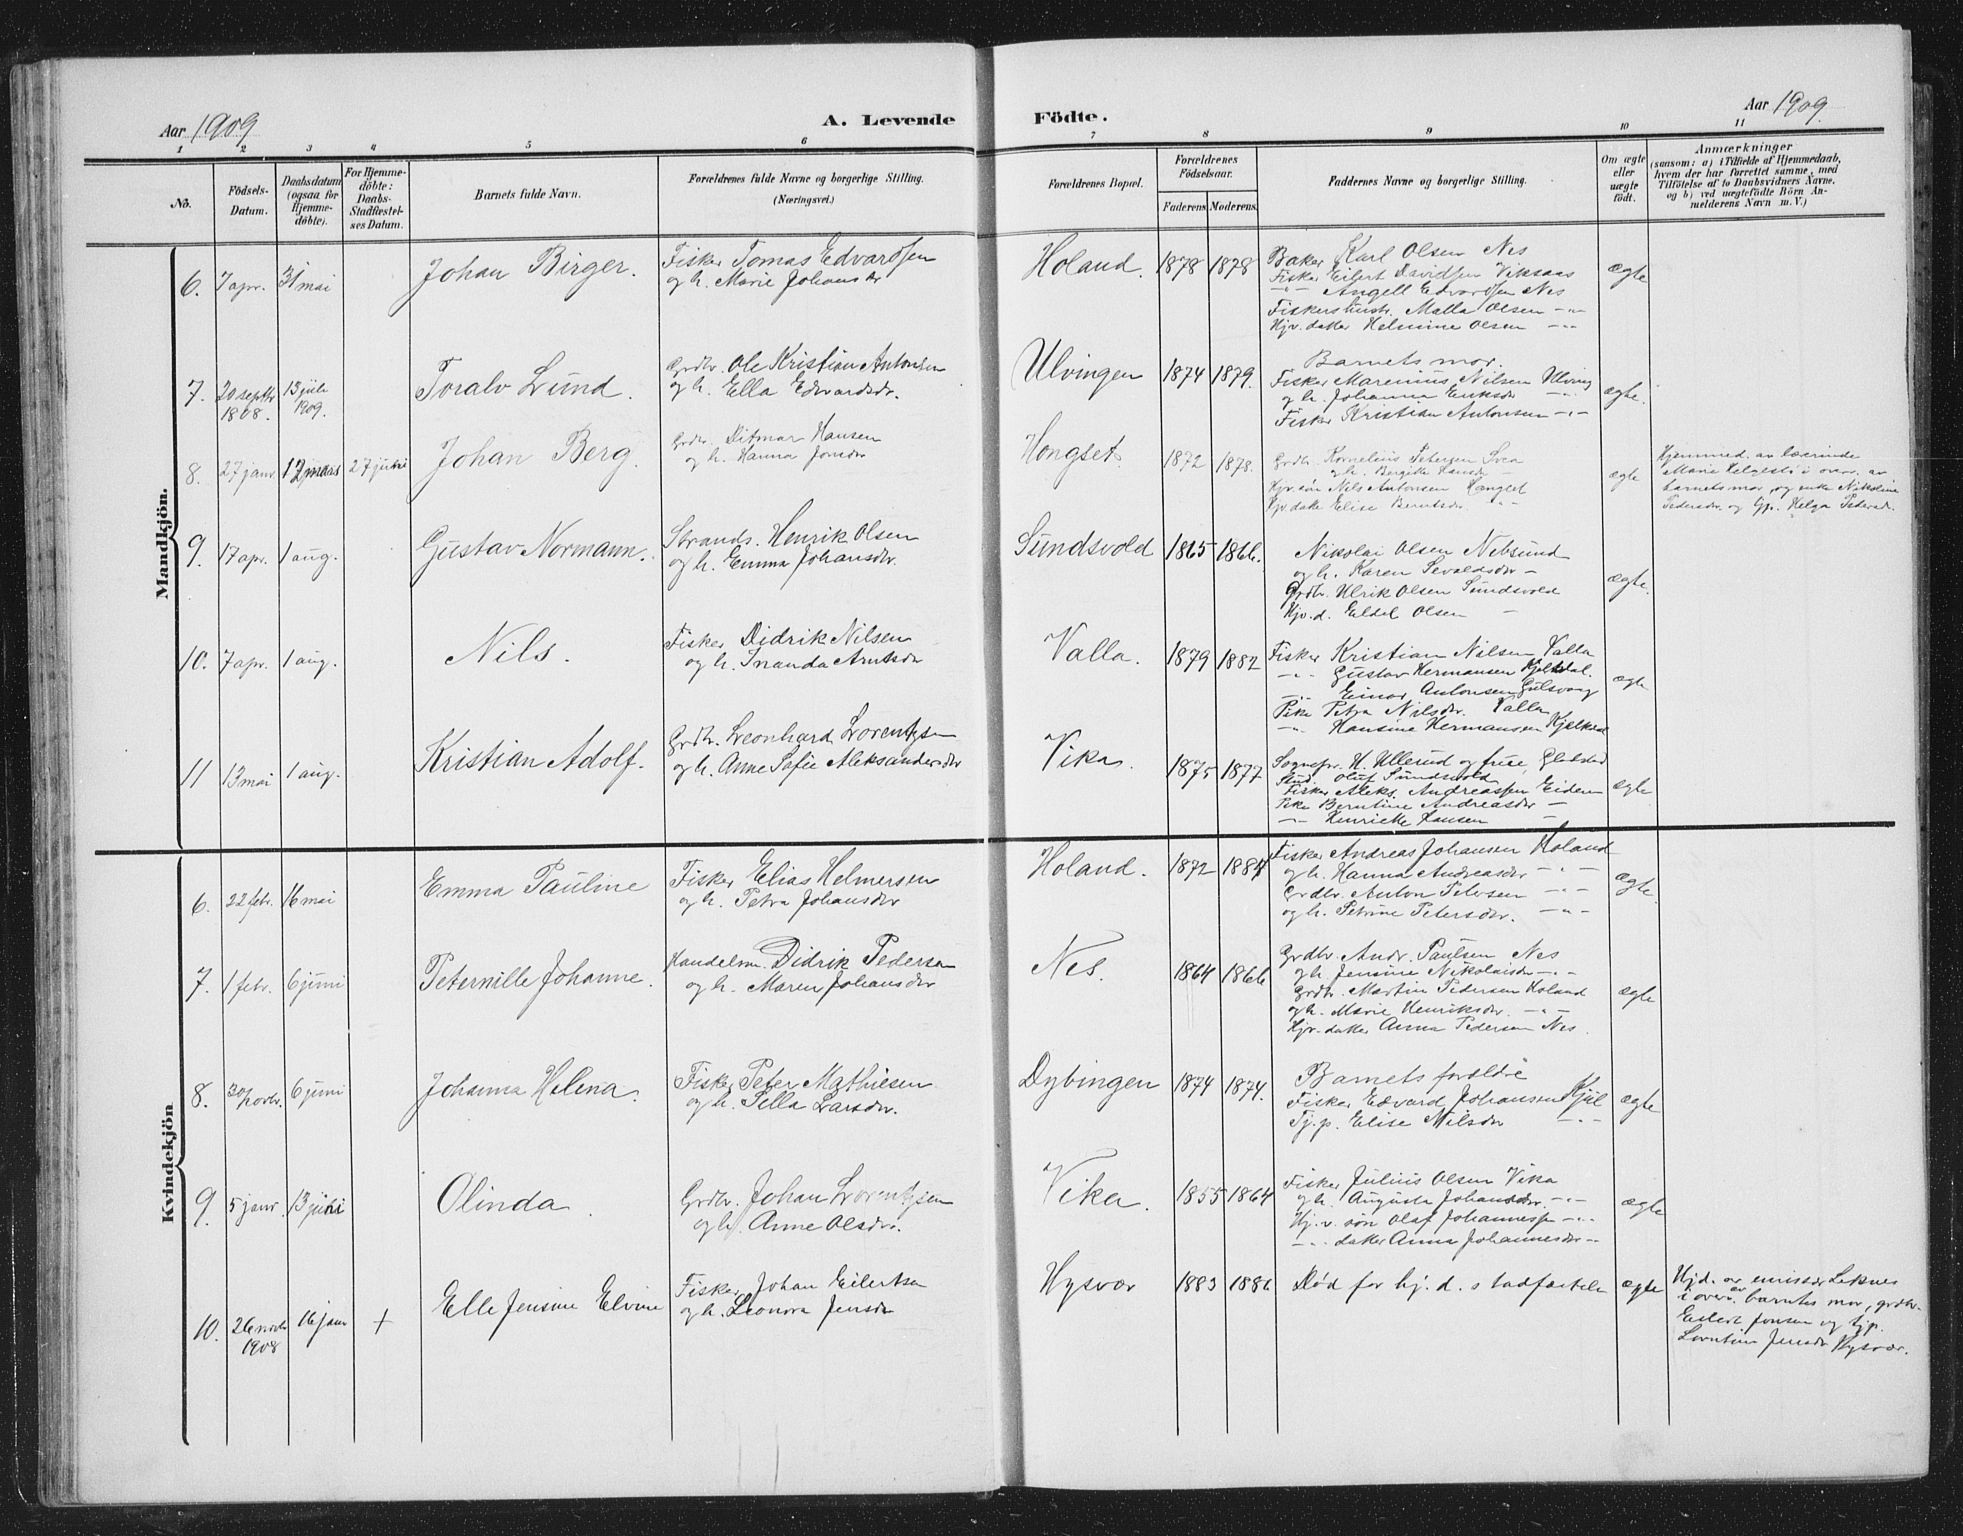 Aar 1909
A. Levende
Födte.
Aar 1909
1 2 3 4 5 6 7 8 9 10 11
No.
Födsels-
Datum.
Daabsdatum
(ogsaa for
Hjemme-
döbte).
For Hjemme-
döbte:
Daabs-
Stadfæstel-
ses Datum.
Barnets fulde Navn.
Forældrenes fulde Navne og borgerlige Stilling.
(Næringsvei.)
Forældrenes Bopæl.
Forældrenes
Födselsaar.
Faderens. Moderens.
Faddernes Navne og borgerlige Stilling.
Om ægte
eller
uægte
födt.
Anmærkninger
(saasom: a) i Tilfælde af Hjemmedaab,
hvem der har forrettet samme, med
Tilföielse af to Daabsvidners Navne,
og b) ved uægtefödte Börn An-
melderens Navn m. V.)
Mandkjön.
6. 7 apr. 31 mai Johan Birger.
Fisker Tomas Edvardsen
og h. Marie Johansdr
Holand. 1878 1878
Baker Karl Olsen Nes
Fisker Eilert Davidsen Viksaas
-"- Angell Edvardsen Nes
Fiskershustr. Malla Olsen -"-
Hjv. datter Helmine Olsen -"-
ægte
7. 20 septbr 1908. 13 juli 1909. Toralv Lund.
Grdbr. Ole Kristian Antonsen
og h. Ella Edvardsdr.
Ulvingen 1874 1879.
Barnets mor.
Fisker Marenius Nilsen Ulving
og h. Johanna Eriksdr -"-
Fisker Kristian Antonsen -"-
ægte.
8. 27 janr 12 mars 27 juni Johan Berg.
Grdbr. Ditmar Hansen
og h. Hanna Jonsdr
Hongset 1872 1878.
Grdbr. Kornelius Petersen Svea
og h. Bergitte Hansdr -
Hjv. søn Nils Antonsen Hongset
Hjv. datte Elise Berntsdr. -"-
ægte
Hjemmed. av lærerinde
Marie Helgest i overv. av
barnets mor, og enke Nikoline
Pedersdr. og Gp. Helga Pedersdr.
9. 17 apr. 1 aug. Gustav Normann.
Strands. Henrik Olsen
og h. Emma Johansdr.
Sundsvold 1865 1866.
Nikolai Olsen Nebsund
og h. Karen Sevaldsdr -
Grdbr. Ulrik Olsen Sundsvold
Hjv. d. Eldel Olsen -
ægte.
10. 7 apr. 1 aug. Nils.
Fisker Didrik Nilsen
og h. Inanda Arntsdr
Valla. 1879 1882
Fisker Kristian Nilsen Valla
-"- Gustav Hermansen Kjelkdal.
-"- Einar Antonsen Gulsvaag
Pike Petra Nilsdr. Valla
-"- Hansine Hermansen Kjelkdal
ægte
11 13 mai 1 aug. Kristian Adolf.
Grdbr. Leonhard Lorentzen
og h. Anne Sofie Aleksandersdr
Vika. 1875 1877
Sognepr. H. Ullerud og frue, Gladstad
Stud. Oluf Sundsvold
Fisker Aleks. Andreassen Eidem
Pike Berntine Andreasdr -
-"- Henriette Hansen -
ægte.
Kvindekjön
6. 22 febr. 16 mai Emma Pauline
Fisker Elias Helmersen
og h. Petra Johansdr
Holand. 1872 1884
Fisker Andreas Johansen Holand
og h. Hanna Andreasdr -"-
Grdbr. Anton Petersen -"-
og h. Petrine Petersdr. -"-
ægte.
7. 1 febr. 6 juni Peternille Johanne.
Handelsm. Didrik Pedersen
og h. Maren Johansdr
Nes. 1864 1866
Grdbr. Andr. Paulsen Nes
og h. Jensine Nikolaisdr -"-
Grdbr. Martin Pedersen Holand
og h. Marie Henriksdr. -"-
Hjv. datter Anna Pedersen Nes.
ægte
8. 30 novbr. 6 juni Johanna Helena.
Fisker Peter Mathiesen
og h. Pella Larsdr.
Dybingen 1874 1874.
Barnets foreldre
Fisker Edvard Johansen Kjul
Tj. p. Elise Nilsdr -"-
ægte
9. 5 janr. 13 juni Olinda.
Grdbr. Johan Lorentzen
og h. Anne Olsdr.
Vika. 1855 1864
Fisker Julius Olsen Vika
og h. Augusta Johansdr. -"-
Hj. v. søn Olaf Johannessen -"-
-"- datter Anna Johannesdr -"-
ægte
10. 26 novbr 1908 16 janr + Elle Jensine Elvine
Fisker Johan Eilertsen
og h. Leonora Jensdr
Hysvær 1883 1886
Død før hj. d. stadfæstelse
ægte
Hjd. av emissær Leknes
i overv. av barnets mor, grdbr.
Eilert Jonsen og tjp.
Lorntine Jensdr Hysvær.